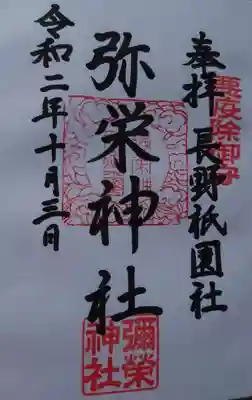 奉拝 長野祇園社
弥栄神社
令和二年十月三日
彌榮神社